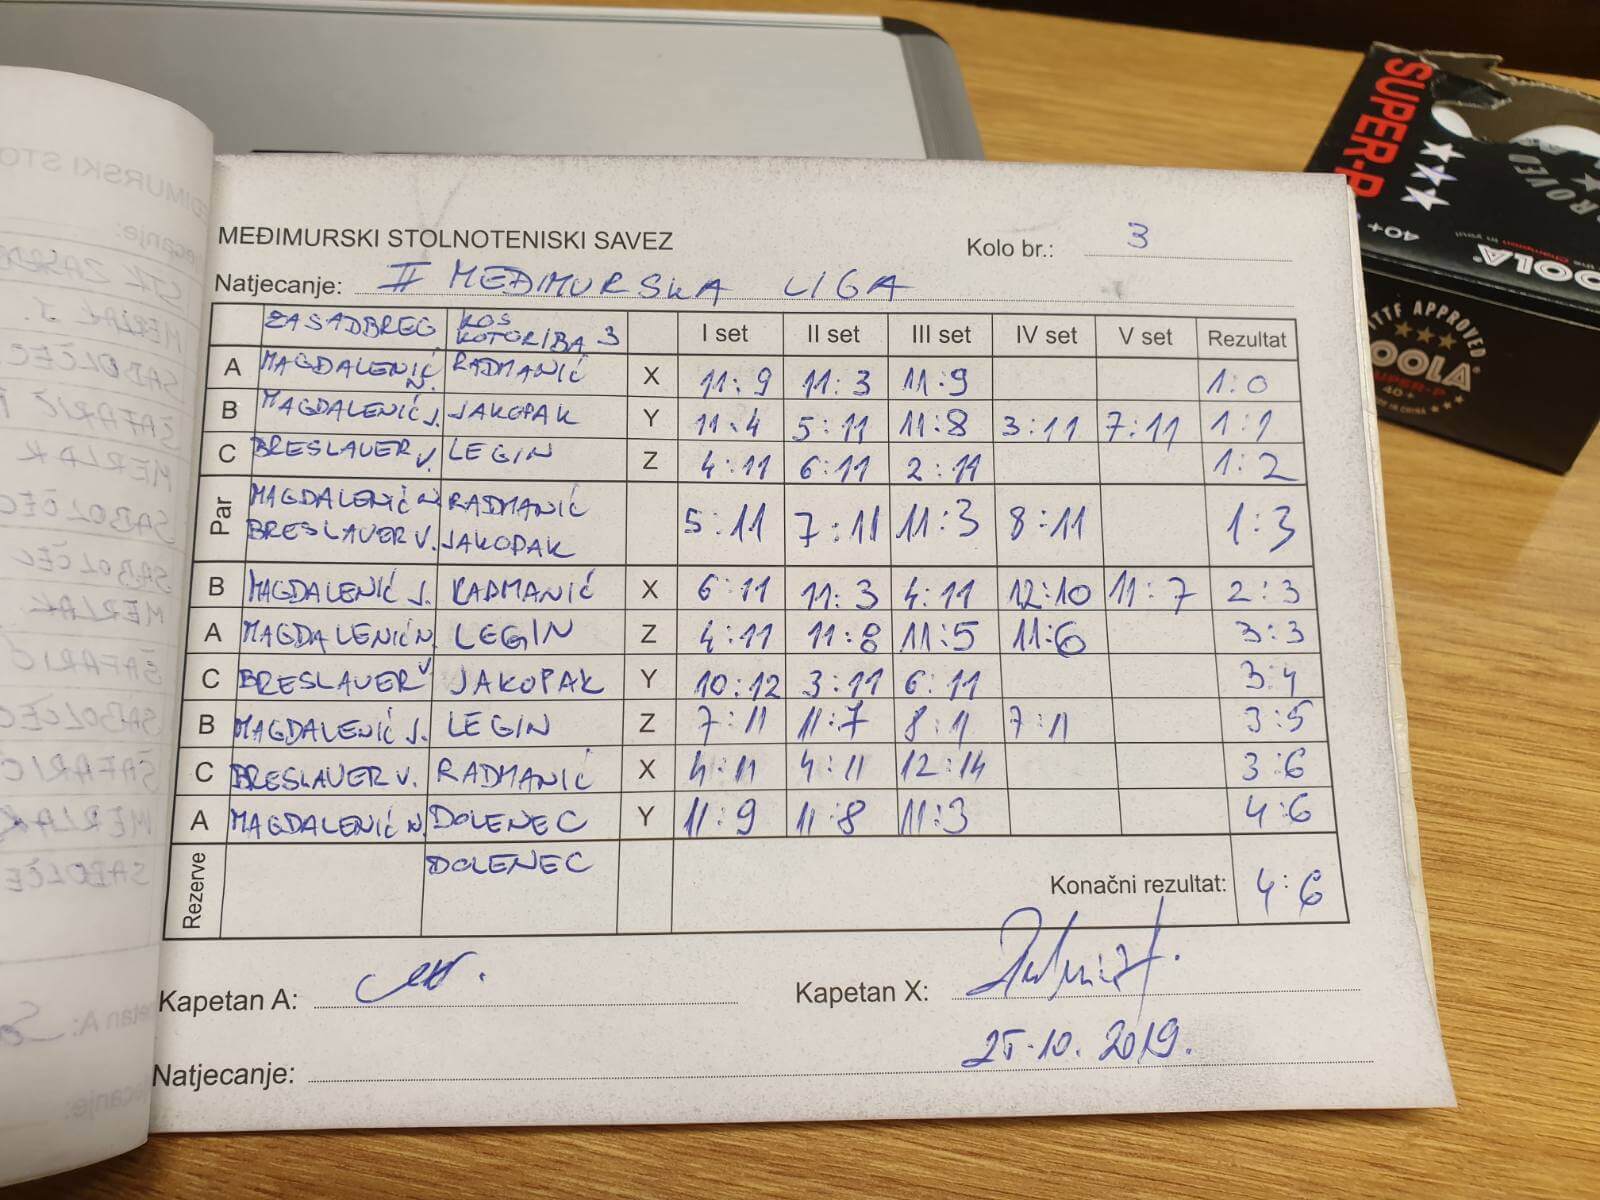 MEĐIMURSKI STOLNOTENISKI SAVEZ
Kolo br.: 3
Natjecanje: II MEĐIMURSKA LIGA
ZASADBREG KOS KOTORIBA 3 I set II set III set IV set V set Rezultat
A MAGDALENIĆ N. RADMANIĆ X 11:9 11:3 11:9 1:0
B MAGDALENIĆ J. JAKOPAK Y 11:4 5:11 11:8 3:11 7:11 1:1
C BRESLAUER V. LEGIN Z 4:11 6:11 2:11 1:2
Par MAGDALENIĆ N. RADMANIĆ
BRESLAUER V. JAKOPAK 5:11 7:11 11:3 8:11 1:3
B MAGDALENIĆ J. RADMANIĆ X 6:11 11:3 4:11 12:10 11:7 2:3
A MAGDALENIĆ N LEGIN Z 4:11 11:8 11:5 11:6 3:3
C BRESLAUER V JAKOPAK Y 10:12 3:11 6:11 3:4
B MAGDALENIĆ J. LEGIN Z 7:11 11:7 8:11 7:11 3:5
C BRESLAUER V. RADMANIĆ X 4:11 4:11 12:14 3:6
A MAGDALENIĆ N. DOLENEC Y 11:9 11:8 11:3 4:6
Rezerve DOLENEC
Konačni rezultat: 4:6
Kapetan A:
Kapetan X:
25.10.2019.
Natjecanje:
SUPER-P
40+
JOOLA
ITTF APPROVED
JOOLA
SUPER-P
40+